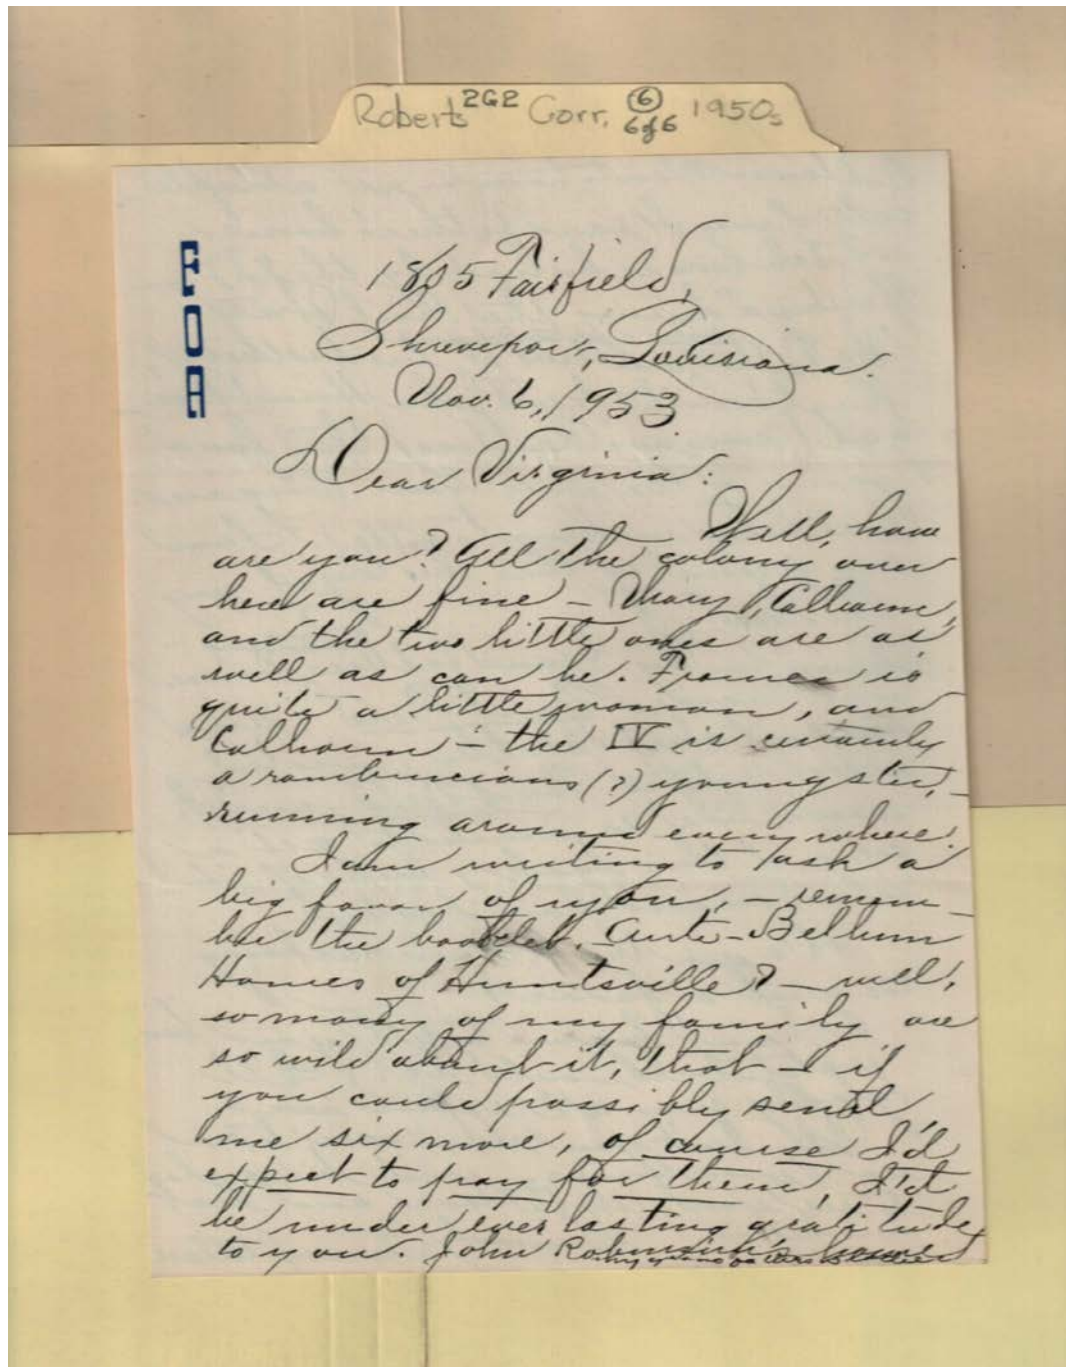 Roberts 2G2 Corr. 6 1950s
6 of 6
E O A
1805 Fairfield,
Shreveport, Louisiana.
Nov. 6, 1953.
Dear Virginia:
Well, how
are you? All the colony over
here are fine – Mary, Calhoun,
and the two little ones are as
well as can be. Frances is
quite a little woman, and
Calhoun – the IV is certainly
a rambuncious (?) youngster, –
running around everywhere.
I am writing to ask a
big favor of you, – remem–
ber the booklet, Ante-Bellum
Homes of Huntsville? – well,
so many of my family are
so wild about it, that – if
you could possibly send
me six more, of course I'd
expect to pay for them, I'd
be under everlasting gratitude
to you. John Robinson's home